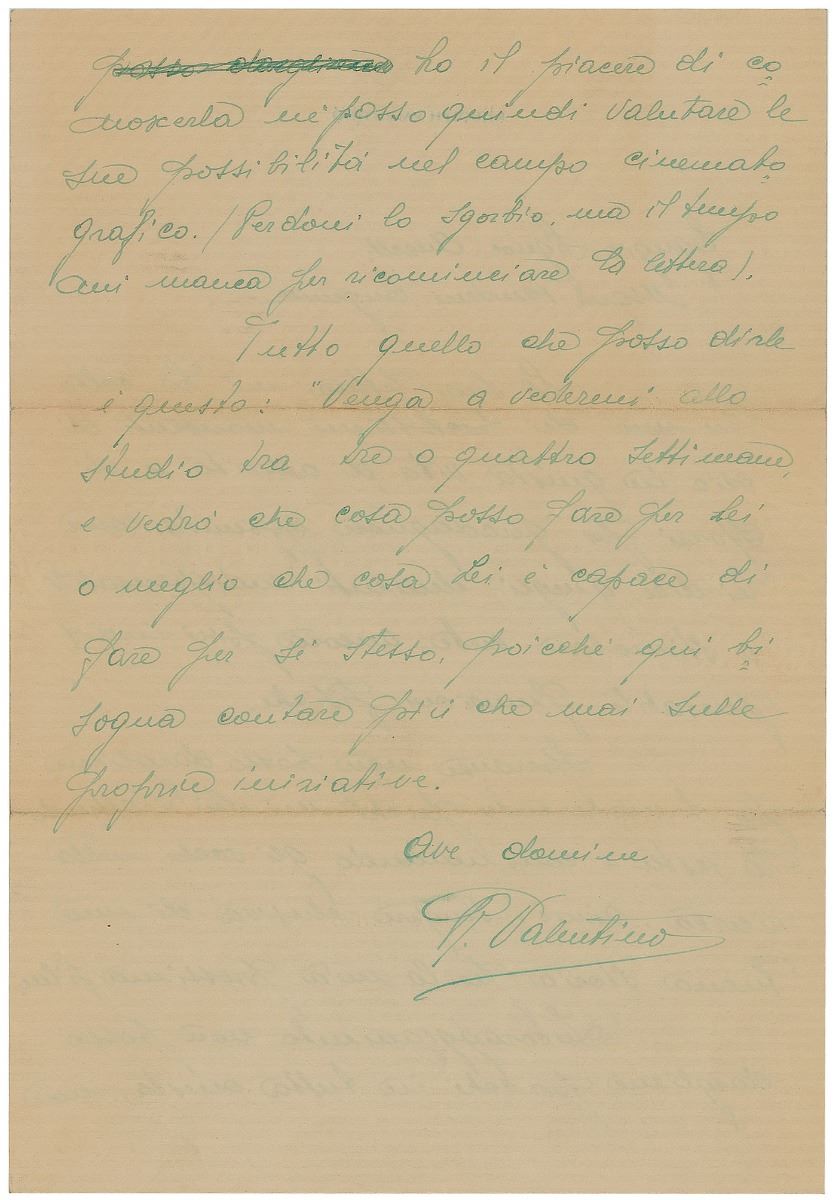 posso dargliene ho il piacere di co
noscerla nè posso quindi valutare le
sue possibilità nel campo cinemato
grafico. (Perdoni lo sgorbio, ma il tempo
mi manca per ricominciare la lettera).
Tutto quello che posso dirle
è questo: "Venga a vedermi allo
studio tra tre o quattro settimane,
e vedrò che cosa posso fare per Lei
o meglio che cosa Lei è capace di
fare per sè stesso, poicchè qui bi
sogna contare più che mai sulle
proprie iniziative.
Ave domine
R. Valentino